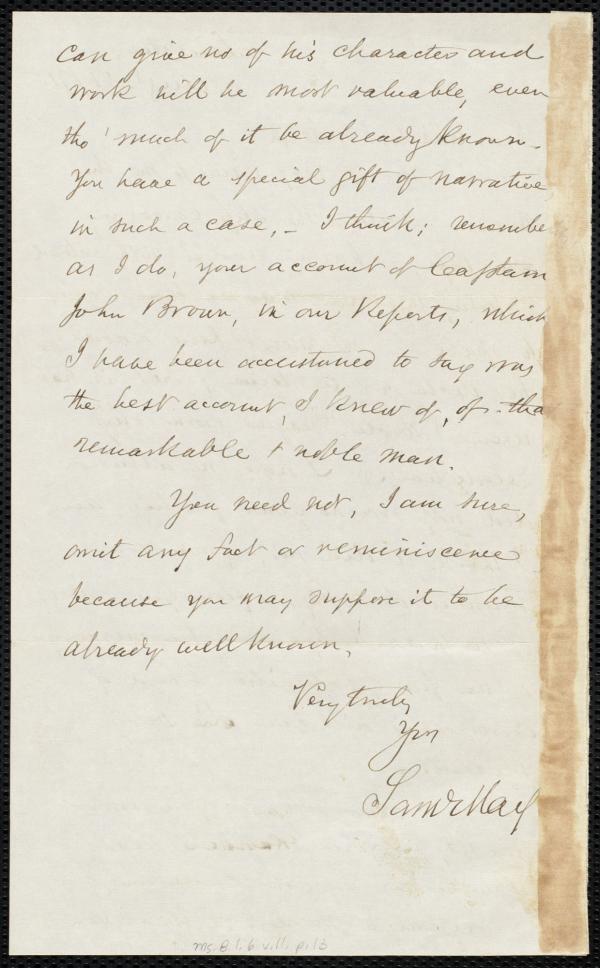 can give us of his character and
work will be most valuable, even
tho' much of it be already known.
You have a special gift of narrative,
in such a case, - I think; remembe
as I do, your account of Captain
John Brown, in our Reports, which
I have been accustomed to say was
the best account, I knew of, of tha
remarkable & noble man.
You need not, I am sure,
omit any fact or reminiscence
because you may suppose it to be
already well known.
Very truly
Yrs
Saml May
Ms. B.1.6 v.11. p.13